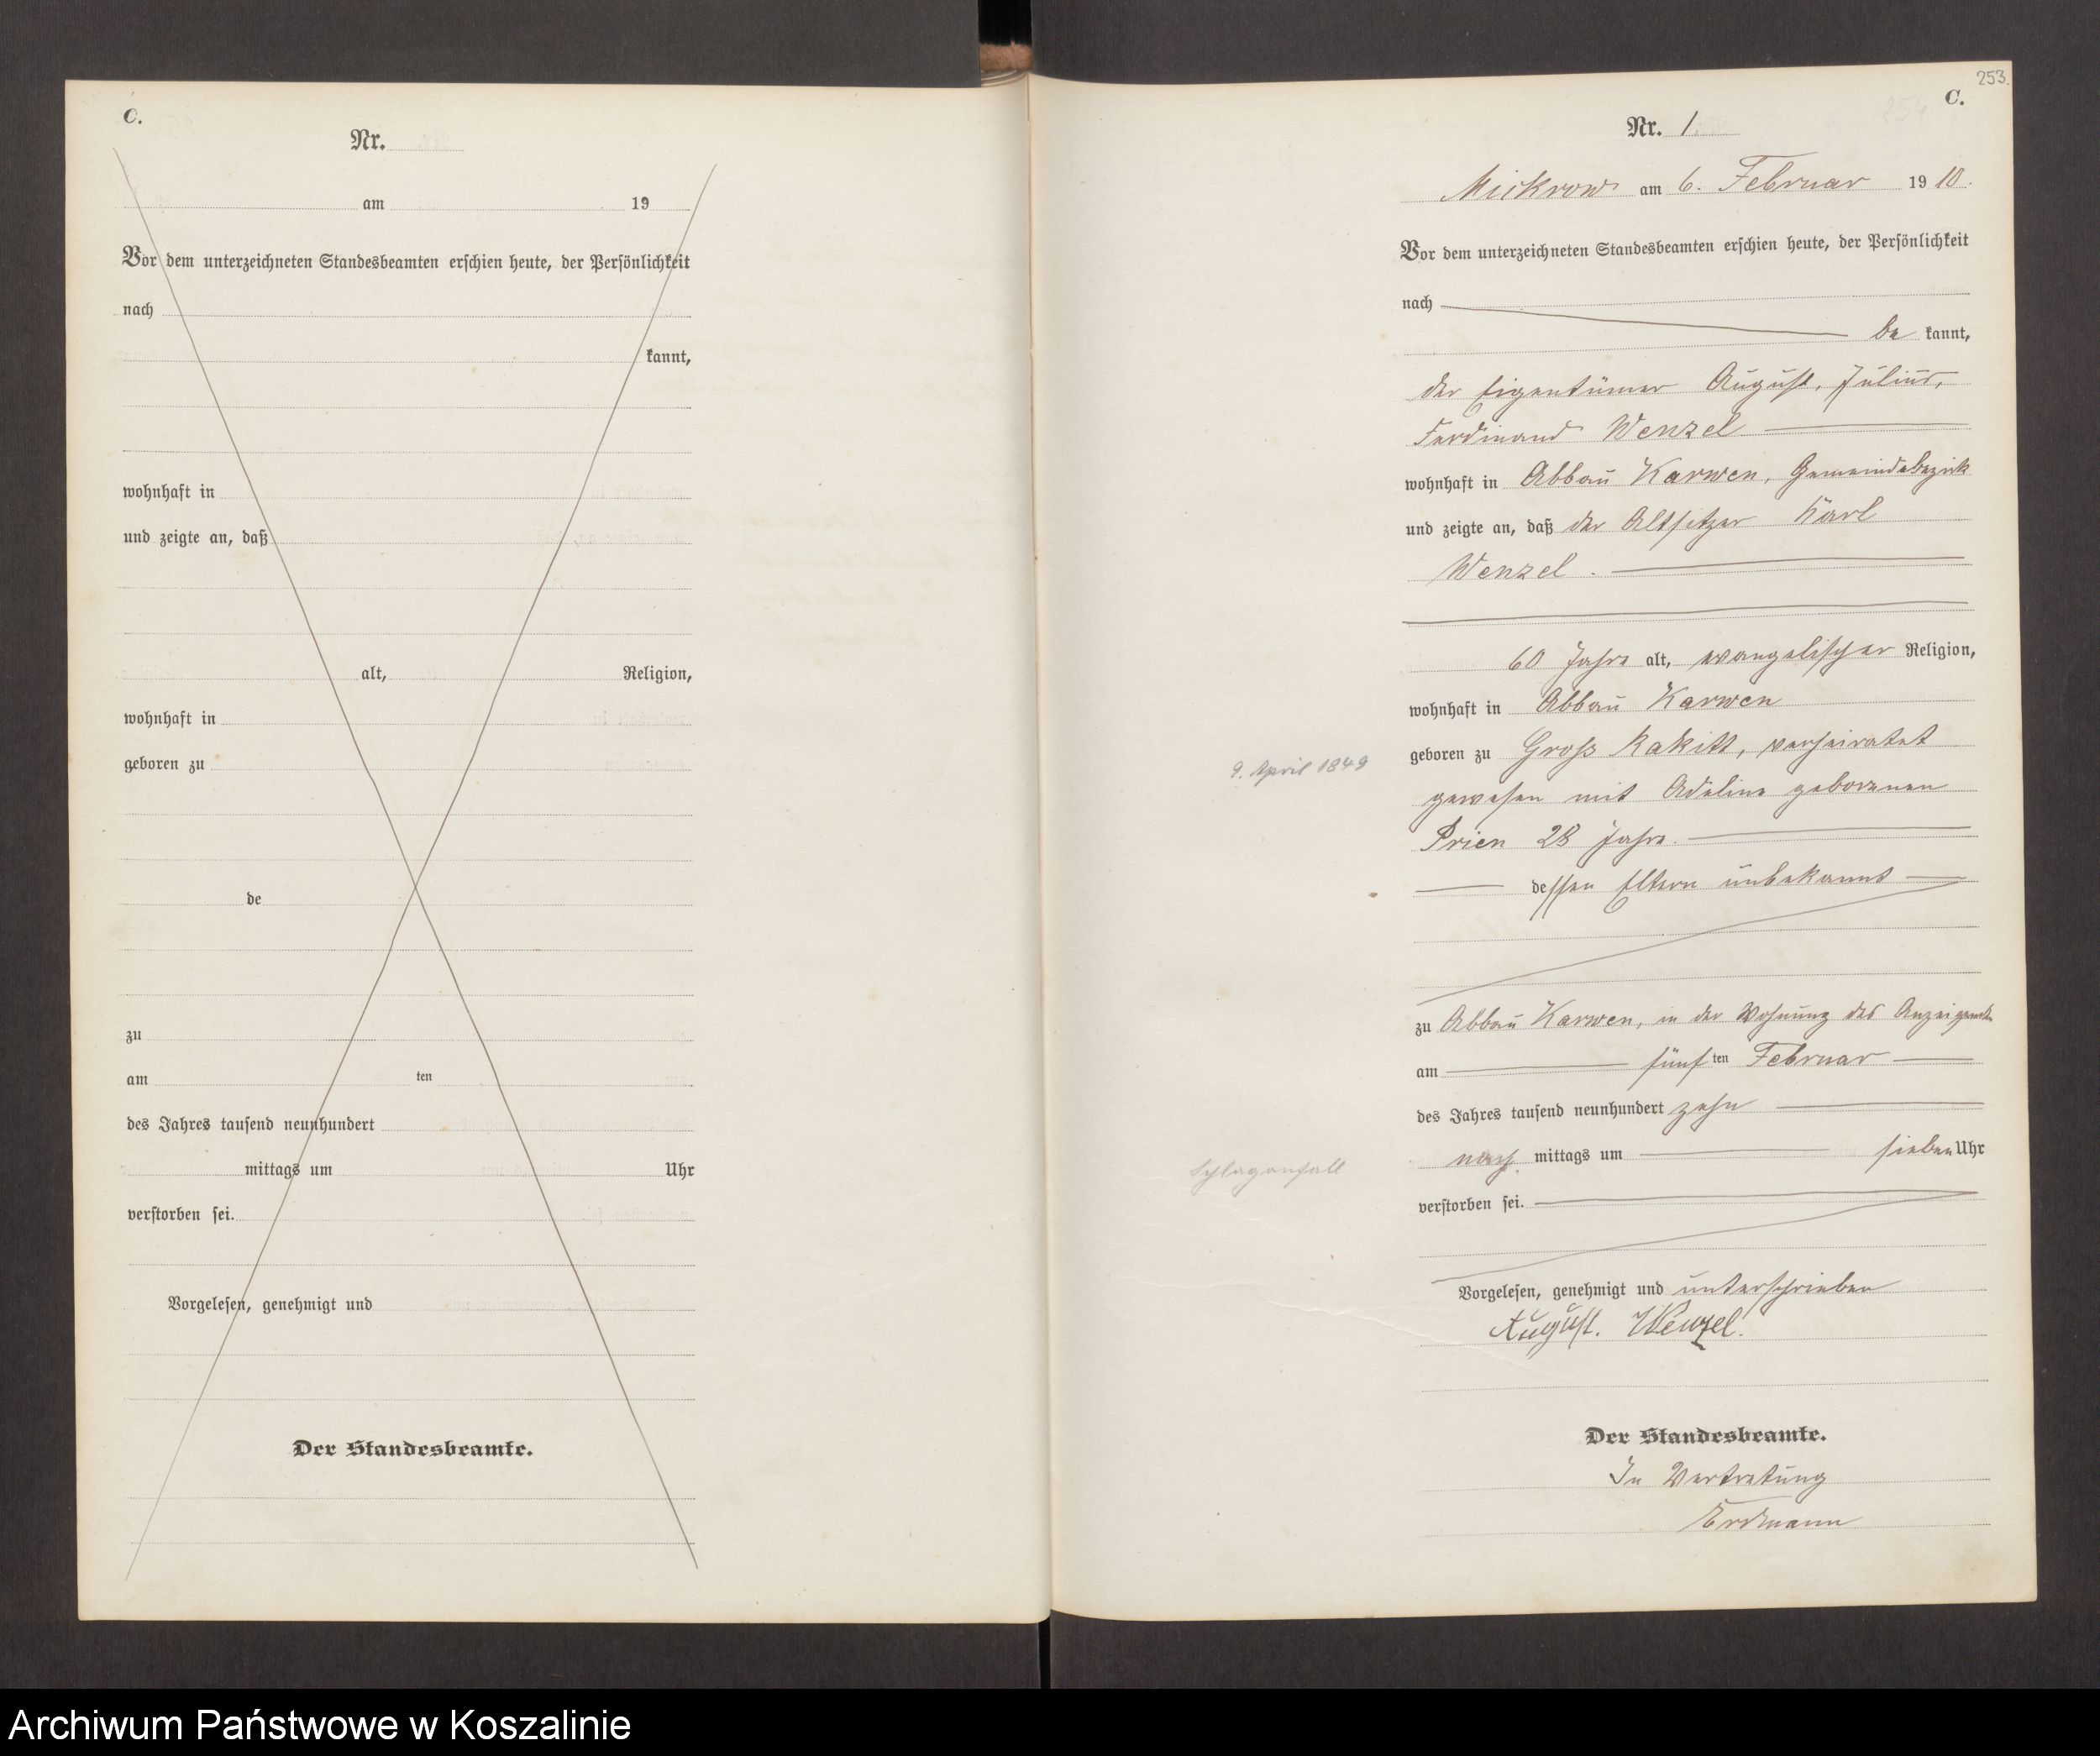 C.
Nr.
am 19
Vor dem unterzeichneten Standesbeamten erschien heute, der Persönlichkeit
nach
kannt,
wohnhaft in
und zeigte an, daß
alt, Religion,
wohnhaft in
geboren zu
de
zu
am ten
des Jahres tausend neunhundert
mittags um Uhr
verstorben sei.
Vorgelesen, genehmigt und
Der Standesbeamte.
253.
C.
Nr. 1.
Mickrow am 6. Februar 1910.
Vor dem unterzeichneten Standesbeamten erschien heute, der Persönlichkeit
nach
be kannt,
der Eigentümer August, Julius,
Ferdinand Wenzel
wohnhaft in Abbau Karwen, Gemeindebezirk
und zeigte an, daß der Altsitzer Karl
Wenzel.
60 Jahre alt, evangelischer Religion,
wohnhaft in Abbau Karwen
9. April 1849
geboren zu Gross Rakitt, verheiratet
gewesen mit Adeline geborenen
Prien 28 Jahre.
dessen Eltern unbekannt
zu Abbau Karwen, in der Wohnung des Anzeigenden
am fünf ten Februar
des Jahres tausend neunhundert zehn
nach mittags um sieben Uhr
Schlaganfall
verstorben sei.
Vorgelesen, genehmigt und unterschrieben
August. Wenzel.
Der Standesbeamte.
In Vertretung
Erdmann
Archiwum Państwowe w Koszalinie